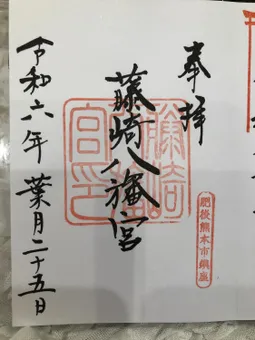 奉拝
肥後熊本市鎮座
藤崎八旛宮
藤崎宮印
令和六年 葉月二十五日